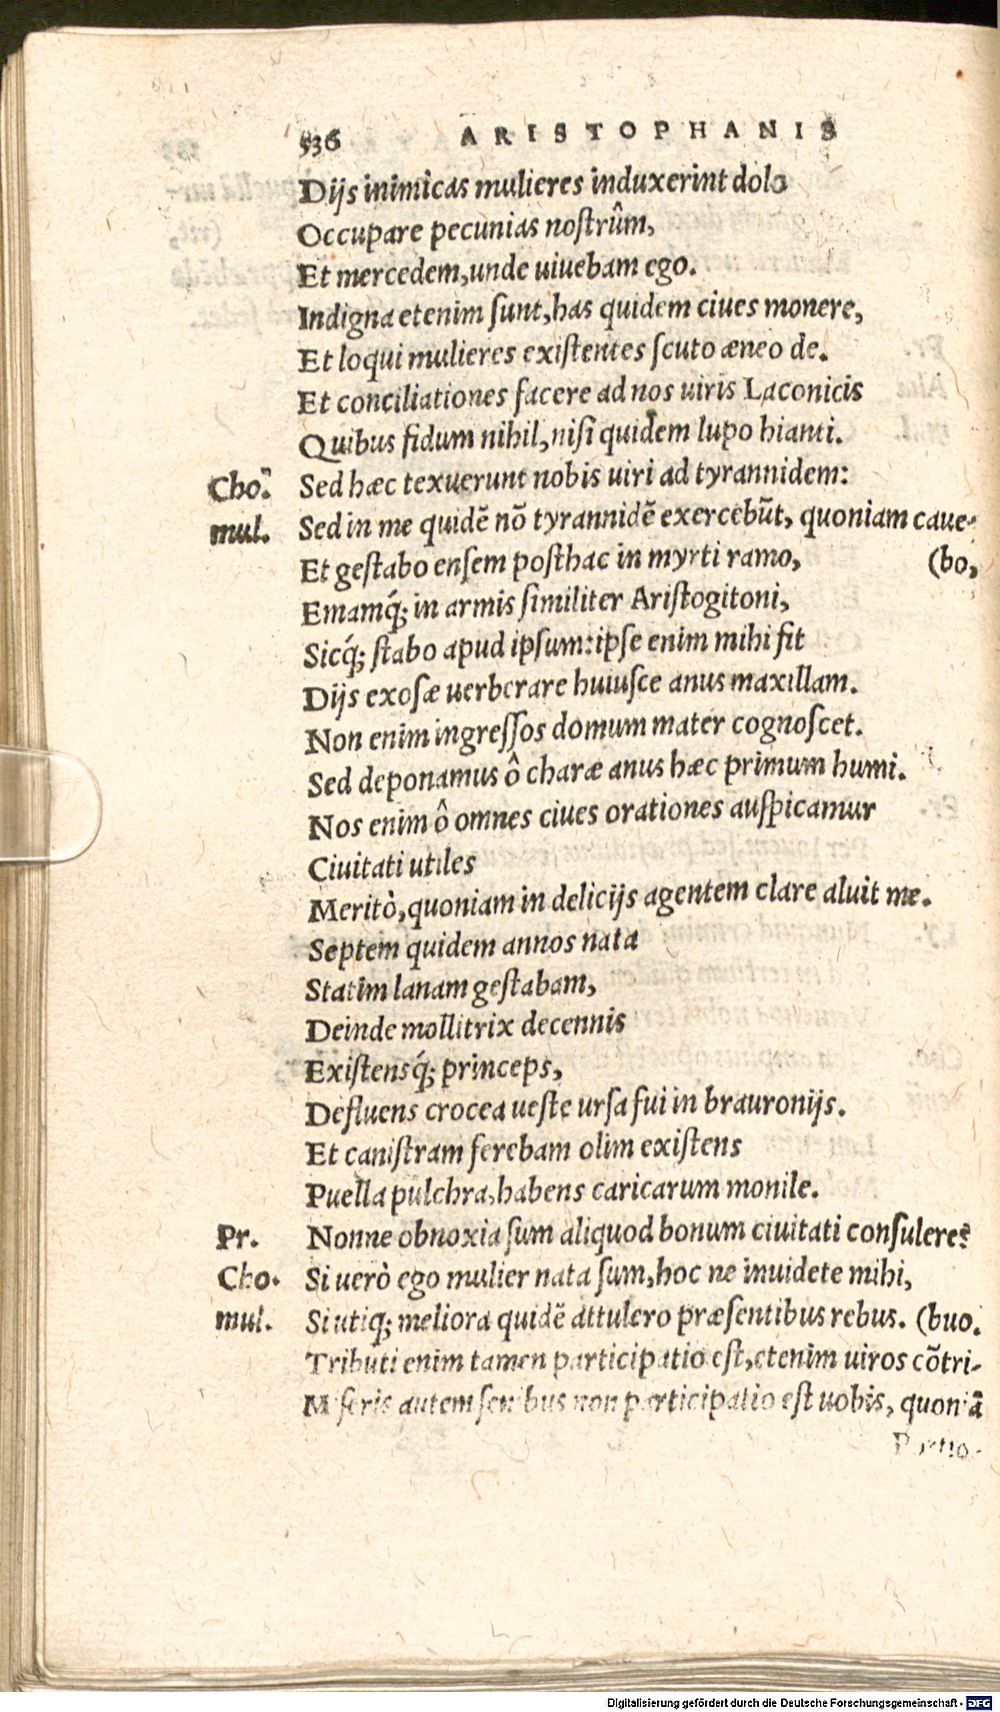 536 ARISTOPHANIS
Dijs inimicas mulieres induxerint dolo
Occupare pecunias nostrûm,
Et mercedem, unde uiuebam ego.
Indigna etenim sunt, has quidem ciues monere,
Et loqui mulieres existentes scuto æneo de.
Et conciliationes facere ad nos uiris Laconicis
Quibus fidum nihil, nisi quidem lupo hianti.
Cho. Sed hæc texuerunt nobis uiri ad tyrannidem:
mul. Sed in me quidẽ nõ tyrannidẽ exercebũt, quoniam caue-
Et gestabo ensem posthac in myrti ramo, (bo,
Emamq́; in armis similiter Aristogitoni,
Sicq́; stabo apud ipsum: ipse enim mihi fit
Dijs exosæ uerberare huiusce anus maxillam.
Non enim ingressos domum mater cognoscet.
Sed deponamus ô charæ anus hæc primum humi.
Nos enim ô omnes ciues orationes auspicamur
Ciuitati utiles
Meritò, quoniam in delicijs agentem clare aluit me.
Septem quidem annos nata
Statim lanam gestabam,
Deinde mollitrix decennis
Existensq́; princeps,
Defluens crocea ueste ursa fui in brauronijs.
Et canistram ferebam olim existens
Puella pulchra, habens caricarum monile.
Pr. Nonne obnoxia sum aliquod bonum ciuitati consulere?
Cho. Si uerò ego mulier nata sum, hoc ne inuidete mihi,
mul. Si utiq; meliora quidẽ attulero præsentibus rebus. (buo.
Tributi enim tamen participatio est, etenim uiros cõtri-
Miseris autem senibus non participatio est uobis, quoniã
Portio-
Digitalisierung gefördert durch die Deutsche Forschungsgemeinschaft - DFG